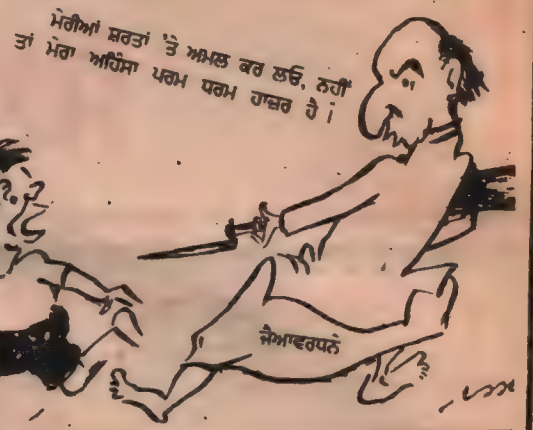 ਮੇਰੀਆਂ ਸ਼ਰਤਾਂ 'ਤੇ ਅਮਲ ਕਰ ਲਓ, ਨਹੀਂ
ਤਾਂ ਮੇਰਾ ਅਹਿੰਸਾ ਪਰਮ ਧਰਮ ਹਾਜ਼ਰ ਹੈ।
ਜੈਆਵਰਧਨੇ